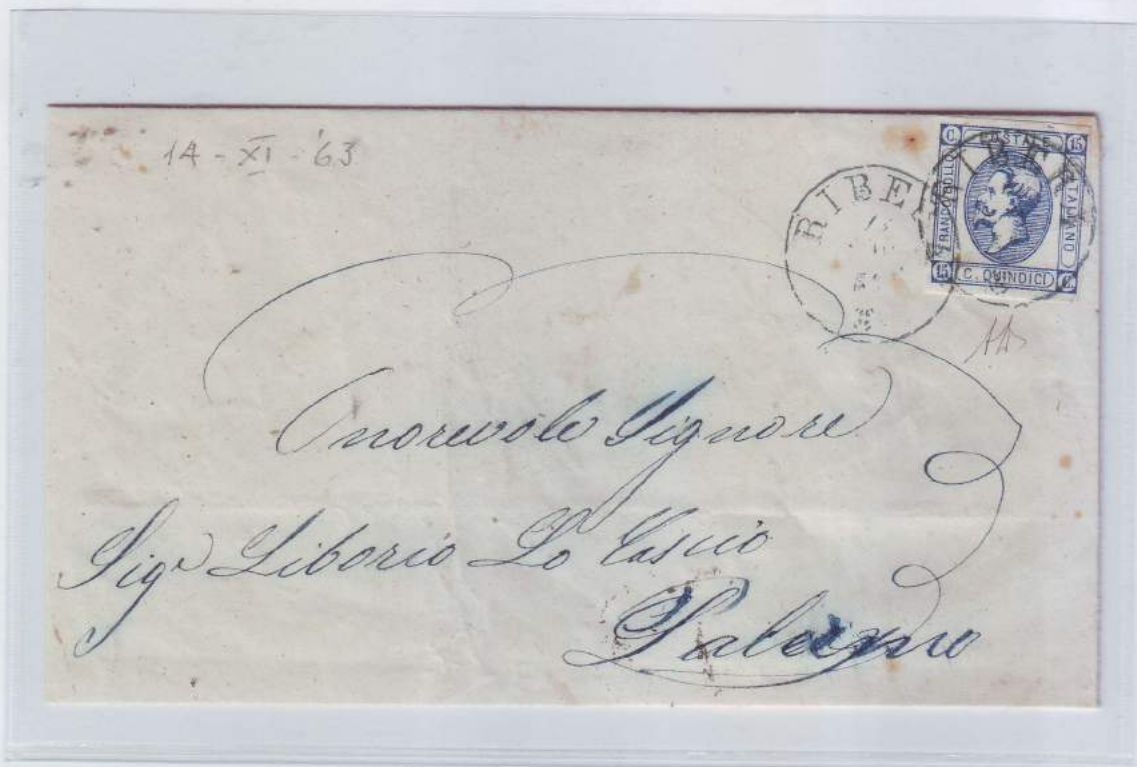 14 - XI - '63
RIBE
C. POSTALE 15
FRANCO BOLLO
ITALIANO
15 C. QUINDICI C.
Onorevole Signore
Sigr Liborio Lo Cascio
Palermo